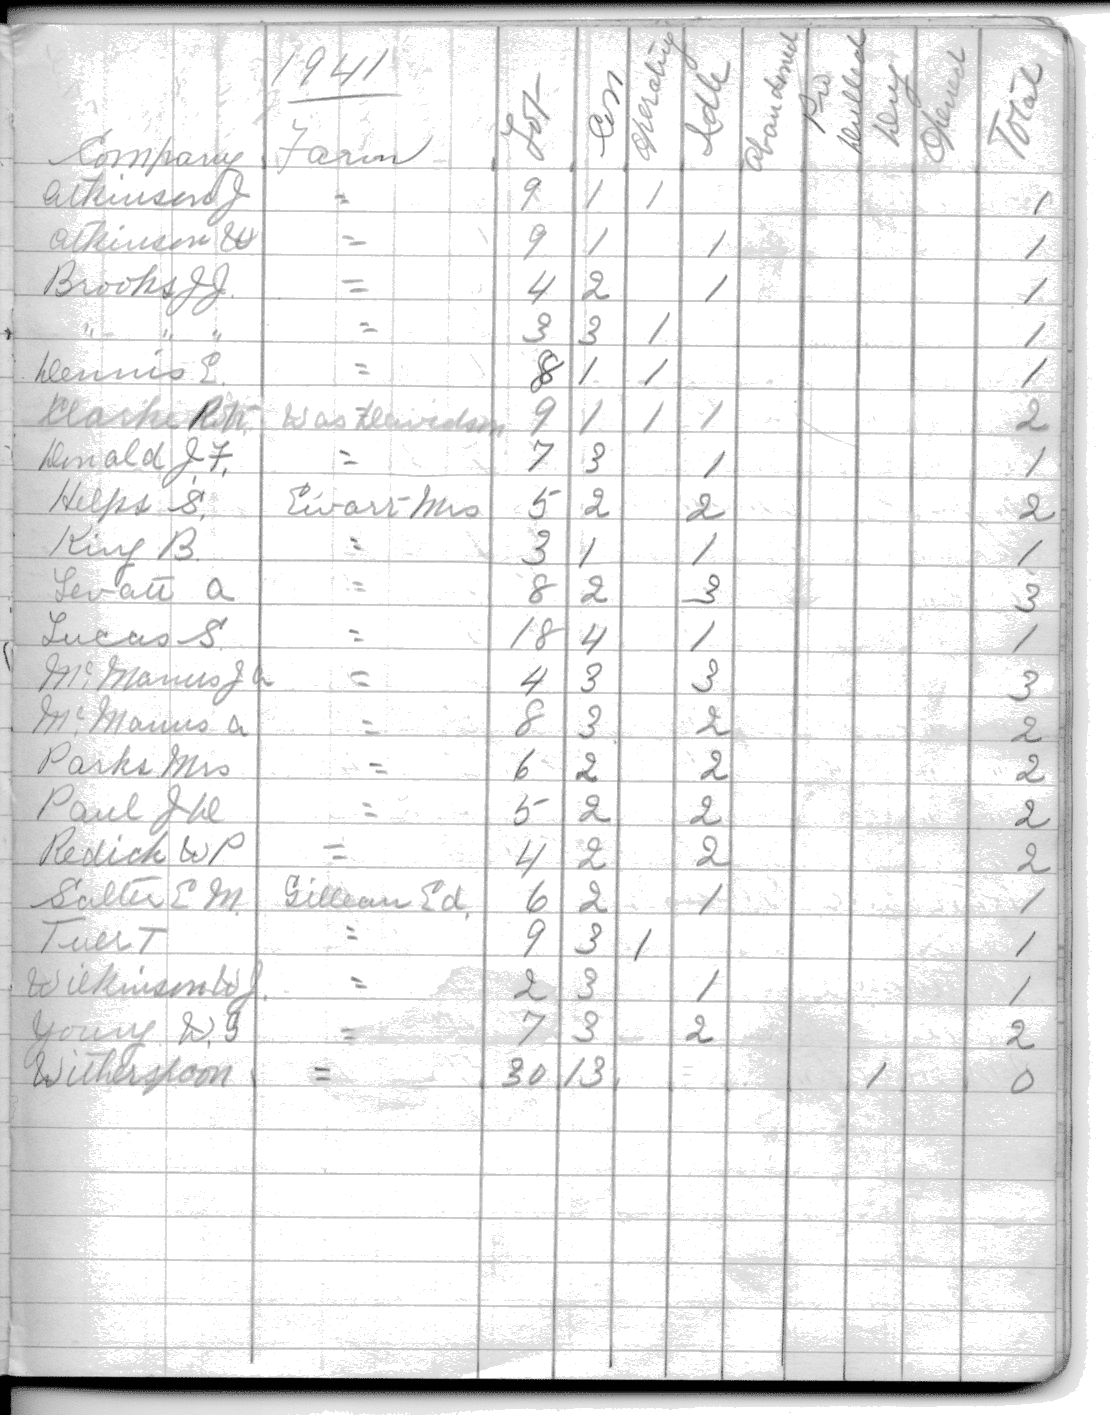 1941
Company Farm Lot Con Operating Idle Abandoned Pro Drilled Dry Opened Total
Atkinson J = 9 1 1 1
Atkinson W = 9 1 1 1
Brooks J J. = 4 2 1 1
" " " = 3 3 1 1
Dennis E. = 8 1 1 1
Clarke Was Davidson 9 1 1 1 2
Donald J. F. = 7 3 1 1
Helps S. Ewart Mrs 5 2 2 2
King B. = 3 1 1 1
Levatt A = 8 2 3 3
Lucas S. = 18 4 1 1
Mc Manus J A = 4 3 3 3
Mc Manus A = 8 3 2 2
Parks Mrs = 6 2 2 2
Paul J W = 5 2 2 2
Redick W P = 4 2 2 2
Salter E M. Gillean Ed. 6 2 1 1
Tuer T = 9 3 1 1
Wilkinson W J. = 2 3 1 1
Young W. G = 7 3 2 2
Witherspoon = 30 13 1 0